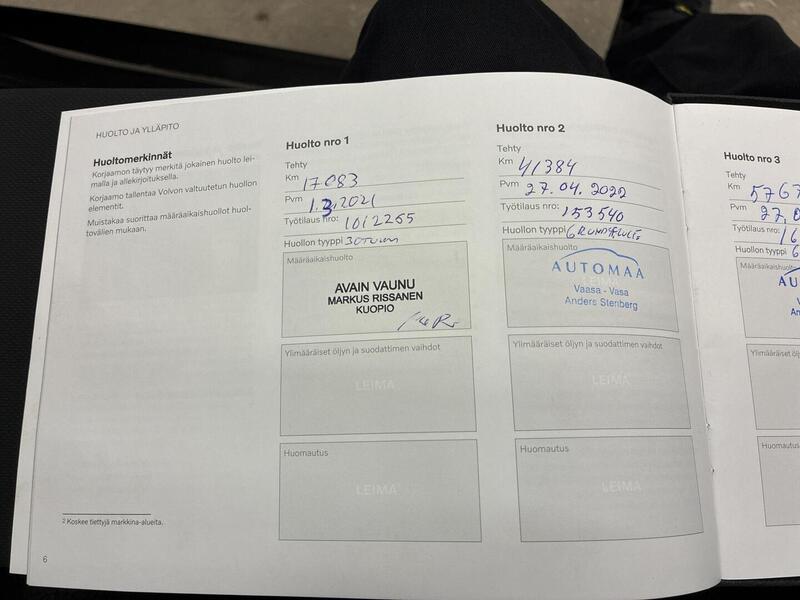 HUOLTO JA YLLÄPITO
Huoltomerkinnät
Korjaamon täytyy merkitä jokainen huolto lei-
malla ja allekirjoituksella.
Korjaamo tallentaa Volvon valtuutetun huollon
elementit.
Muistakaa suorittaa määräaikaishuollot huol-
tovälien mukaan.
2 Koskee tiettyjä markkina-alueita.
6
Huolto nro 1
Tehty
Km 17083
Pvm 1.3.2021
Työtilaus nro: 1012265
Huollon tyyppi
Määräaikaishuolto
AVAIN VAUNU
MARKUS RISSANEN
KUOPIO
Ylimääräiset öljyn ja suodattimen vaihdot
LEIMA
Huomautus
LEIMA
Huolto nro 2
Tehty
Km 41384
Pvm 27.04.2022
Työtilaus nro: 153540
Huollon tyyppi
Määräaikaishuolto
LEIMA
AUTOMAA
Vaasa - Vasa
Anders Stenberg
Ylimääräiset öljyn ja suodattimen vaihdot
LEIMA
Huomautus
LEIMA
Huolto nro 3
Tehty
Km 5767
Pvm 27.
Työtilaus nro: 16
Huollon tyyppi
Määräaikaishuolto
AU
An
Ylimääräiset öl
Huomautus